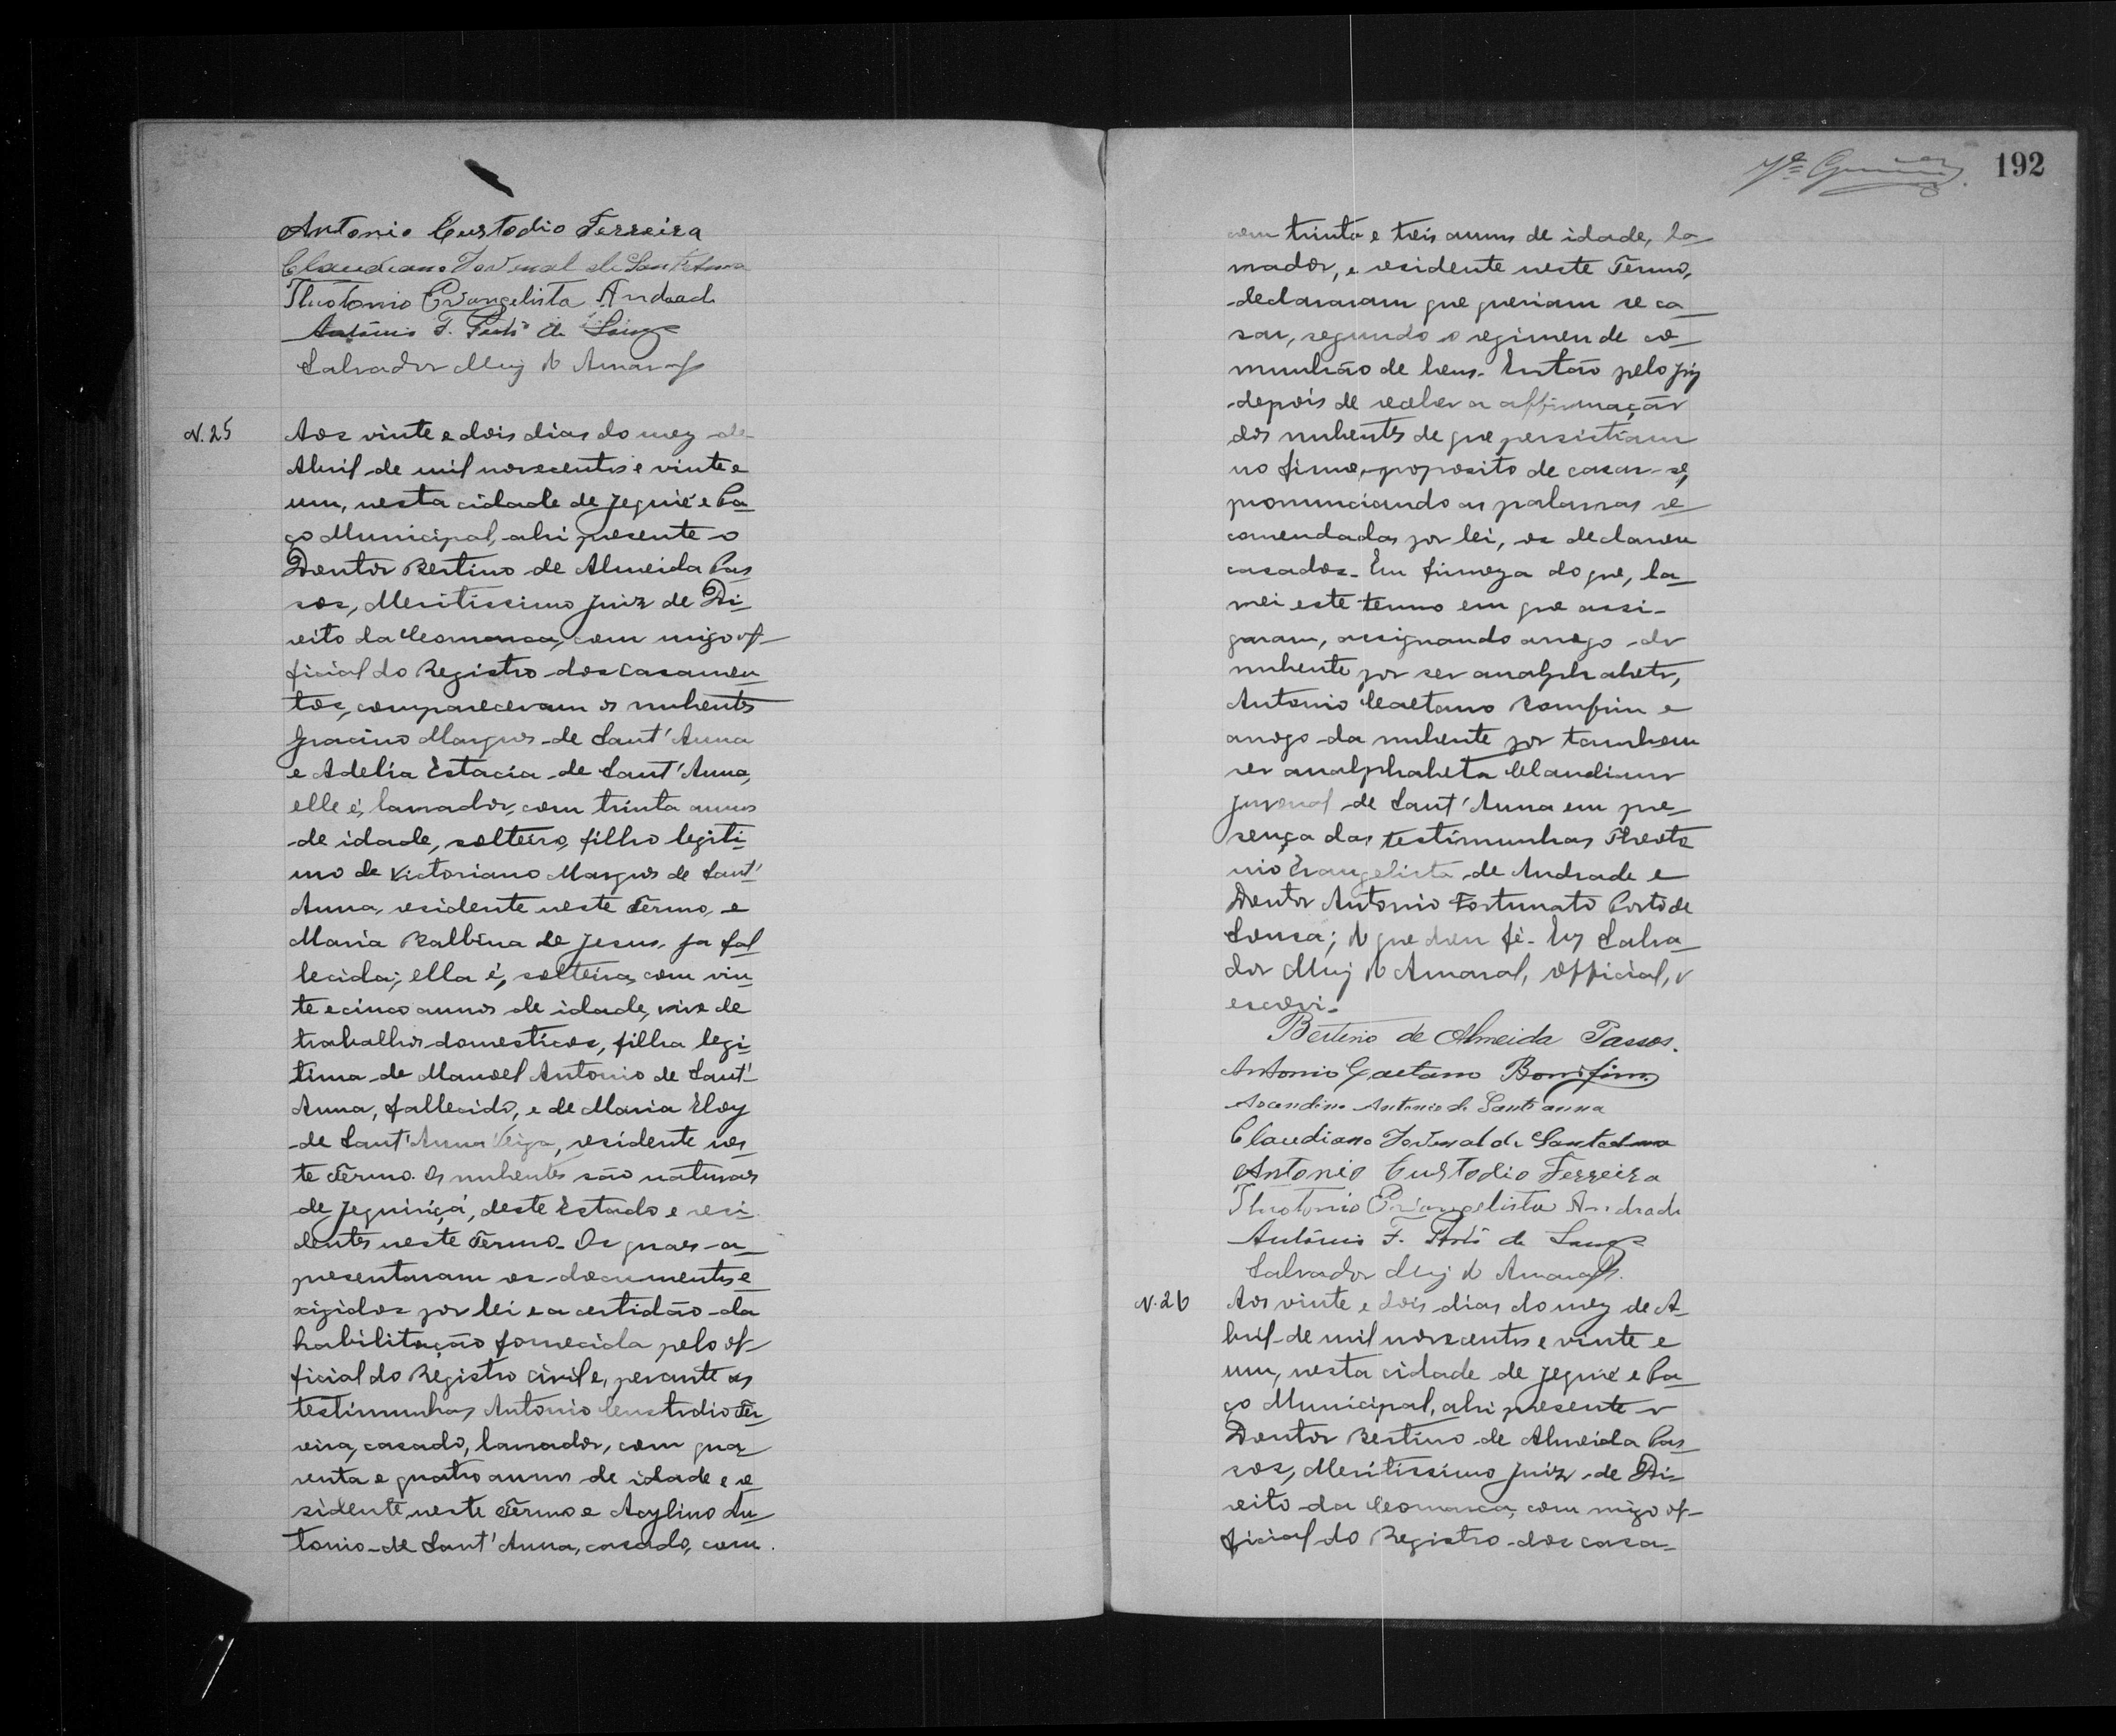 Antonio Custodio Ferreira
Claudiano Jovenal de Sant'Anna
Theotonio Evangelista Andrade
Antônio F. Porto de Souza
Salvador Muiz do Amaral
N. 25
Aos vinte e dois dias do mez de
Abril de mil novecentos e vinte e
um, nesta cidade de Jequié e Pa
ço Municipal, ahi presente o
Doutor Bertino de Almeida Pas
sos, Meritissimo Juiz de Di
reito da Comarca, com migo of
ficial do Registro dos Casamen
tos, compareceram os nubentes
Gracino Marques de Sant'Anna
e Adelia Estacia de Sant'Anna,
elle é, lavrador, com trinta annos
de idade, solteiro, filho legiti
mo de Victoriano Marques de Sant'
Anna, residente neste Termo, e
Maria Balbina de Jesus, ja fal
lecida; ella é, solteira, com vin
te e cinco annos de idade, vive de
trabalhos domesticos, filha legi
tima de Manoel Antonio de Sant'
Anna, fallecido, e de Maria Eloy
de Sant'Anna Veiga, residente nes
te Termo. Os nubentes são naturaes
de Jequiriçá, deste Estado e resi
dentes neste Termo. Os quaes a
presentaram os documentos e
xigidos por lei e a certidão da
habilitação fornecida pelo of
ficial do Registro Civil e, perante as
testimunhas Antonio Custodio Fer
reira, casado, lavrador, com qua
renta e quatro annos de idade e re
sidente neste Termo e Acylino An
tonio de Sant'Anna, casado, com
192
com trinta e treis annos de idade, la
vrador, e residente neste Termo,
declararam que queriam se ca
sar, segundo o regimen de co
munhão de bens. Então pelo Juiz
depois de receber a affirmação
dos nubentes de que persistiam
no firme proposito de casar-se,
pronunciando as palavras re
comendadas por lei, os declarou
casados. Em firmeza do que, la
vrei este termo em que assi-
garam, assignando a rogo do
nubente por ser analphabeto,
Antonio Caetano Bomfim e
a rogo da nubente por tambem
ser analphabeta Claudiano
Juvenal de Sant'Anna em pre
sença das testimunhas Theoto
nio Evangelista de Andrade e
Doutor Antonio Fortunato Porto de
Sousa; do que dou fé. Eu Salva
dor Muiz do Amaral, official, o
escrevi.
Bertino de Almeida Passos.
Antonio Caetano Bomfim
Ascendino Antonio de Santanna
Claudiano Jovenal de Santanna
Antonio Custodio Ferreira
Theotonio Evangelista Andrade
Antônio F. Porto de Souza
Salvador Muiz do Amaral.
N. 26
Aos vinte e dois dias do mez de A
bril de mil novecentos e vinte e
um, nesta cidade de Jequié e Pa
ço Municipal, ahi presente o
Doutor Bertino de Almeida Pas
sos, Meritissimo Juiz de Di
reito da Comarca, com migo of
ficial do Registro dos casa-